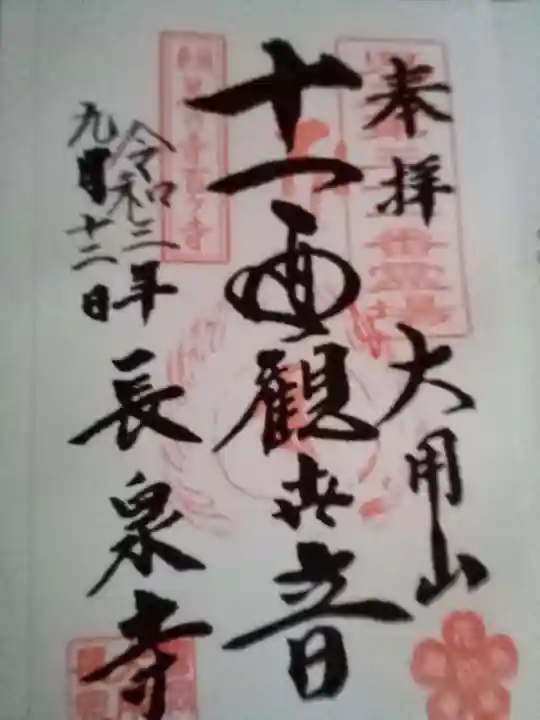 奉拝
大用山
十一面觀世音
令和三年
九月十二日
長泉寺